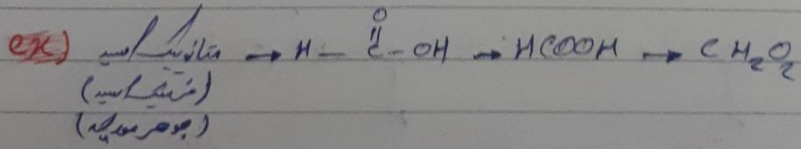 ex) متانویک اسید → H - C(=O) - OH → HCOOH → CH₂O₂
(فرمیک اسید)
(جوهر مورچه)